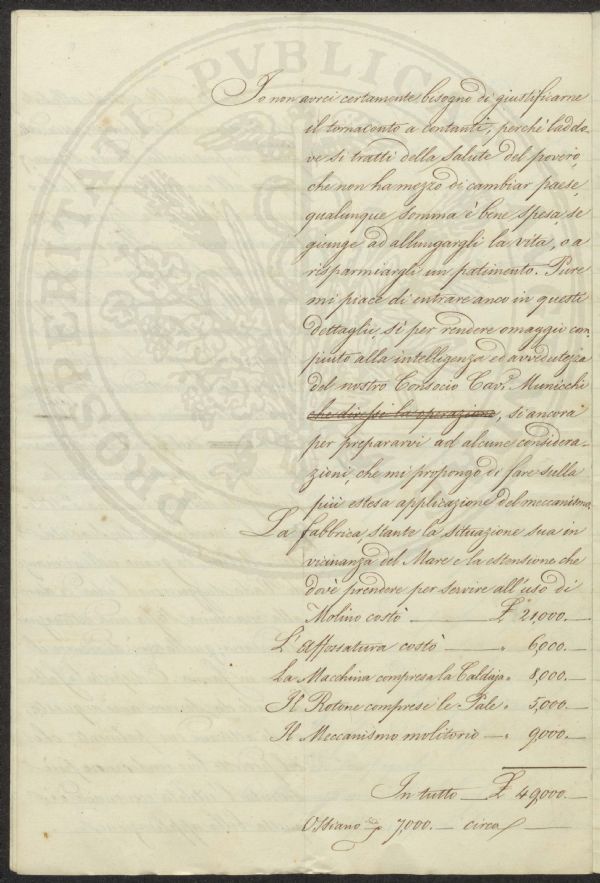 PROSPERITATI PVBLICAE
Io non avrei certamente bisogno di giustificarne
il tornaconto a contanti, perché laddo-
ve si tratti della salute del povero
che non ha mezzo di cambiar paese,
qualunque somma è bene spesa, se
giunge ad allungargli la vita, o a
risparmiargli un patimento. Pure
mi piace di entrare anco in questi
dettaglii, sì per rendere omaggio com-
piuto alla intelligenza ed avvedutezza
del nostro Consocio Cav.r Municchi
che diresse la operazione, sì ancora
per prepararvi ad alcune considera-
zioni, che mi propongo di fare sulla
più estesa applicazione del meccanismo.
La fabbrica, stante la situazione sua in
vicinanza del Mare e la estensione che
dovè prendere per servire all'uso di
Molino costò — £ 21,000. —
L'Affossatura costò — " 6,000. —
La Macchina compresa la Caldaja " 8,000. —
Il Rotone comprese le Pale " 5,000. —
Il Meccanismo molitorio — " 9,000. —
In tutto — £ 49,000. —
Ossiano 7,000. — circa —